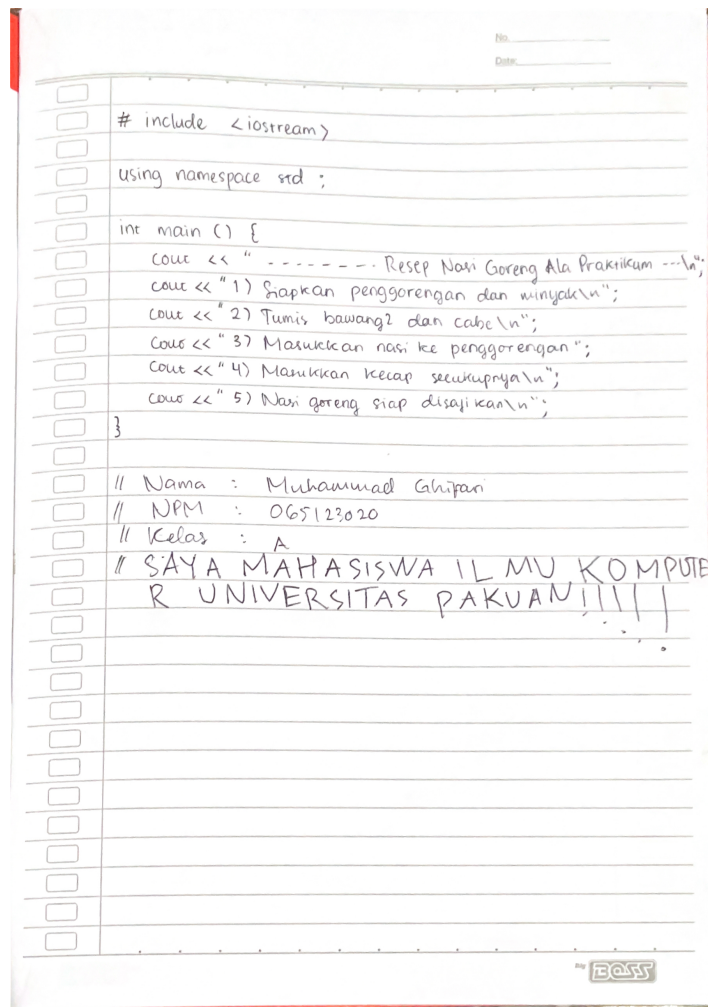 No.
Date:
# include <iostream>
using namespace std ;
int main () {
cout << " - - - - - - - - . Resep Nasi Goreng Ala Praktikum ---\n";
cout << " 1) Siapkan penggorengan dan minyak\n";
cout << " 2) Tumis bawang2 dan cabe\n";
cout << " 3) Masukkan nasi ke penggorengan ";
cout << " 4) Masukkan kecap secukupnya\n";
cout << " 5) Nasi goreng siap disajikan\n";
}
// Nama : Muhammad Ghifari
// NPM : 065123020
// Kelas : A
// SAYA MAHASISWA ILMU KOMPUTE
R UNIVERSITAS PAKUAN!!!!!!
Big BOSS